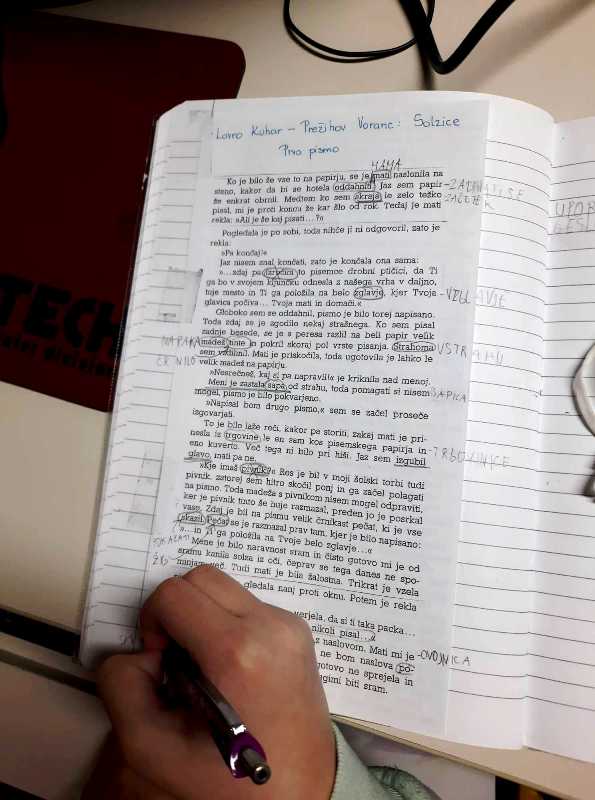 Lovro Kuhar - Prežihov Voranc: Solzice
Prvo pismo
MAMA
Ko je bilo že vse to na papirju, se je mati naslonila na
steno, kakor da bi se hotela oddahniti. Jaz sem papir
že enkrat obrnil. Medtem ko sem skraja le zelo težko
ZAČETEK
pisal, mi je proti koncu že kar šlo od rok. Tedaj je mati
rekla: »Ali je še kaj pisati...?«
UPOR
GES
Pogledala je po sobi, toda nihče ji ni odgovoril, zato je
rekla:
»Pa končaj!«
Jaz nisem znal končati, zato je končala ona sama:
»...zdaj pa to pisemce drobni ptičici, da Ti
ga bo v svojem kljunčku odnesla z našega vrha v daljno,
tuje mesto in Ti ga položila na belo zglavje, kjer Tvoja
-VZGLAVJE
glavica počiva... Tvoja mati in domači.«
Globoko sem se oddahnil, pismo je bilo torej napisano.
Toda zdaj se je zgodilo nekaj strašnega. Ko sem pisal
zadnje besede, se je s peresa razlil na beli papir velik
NAPAKA
madež tinte in pokril skoraj pol vrste pisanja. Strahoma
V STRAHU
ČRNILO
sem vzkliknil. Mati je priskočila, toda ugotovila je lahko le
velik madež na papirju.
»Nesrečnež, kaj si pa napravil!« je kriknila nad menoj.
Meni je zastala sapa od strahu, toda pomagati si nisem
SAPICA
mogel, pismo je bilo pokvarjeno.
»Napisal bom drugo pismo,« sem se začel proseče
izgovarjati.
To je bilo laže reči, kakor pa storiti, zakaj mati je pri-
nesla iz trgovine le en sam kos pisemskega papirja in
-TRGOVINICE
eno kuverto. Več tega ni bilo pri hiši. Jaz sem izgubil
glavo, mati pa ne.
»Kje imaš pivnik?« Res je bil v moji šolski torbi tudi
pivnik, zatorej sem hitro skočil ponj in ga začel polagati
na pismo. Toda madeža s pivnikom nisem mogel odpraviti,
ker je pivnik tinto še huje razmazal, preden jo je posrkal
vase. Zdaj je bil na pismu velik črnikast pečat, ki je vse
skazil. Pečat se je razmazal prav tam, kjer je bilo napisano:
»...in Ti ga položila na Tvoje belo zglavje...«
Mene je bilo naravnost sram in čisto gotovo mi je od
sramu kanila solza iz oči, čeprav se tega danes ne spo-
minjam več. Tudi mati je bila žalostna. Trikrat je vzela
gledala nanj proti oknu. Potem je rekla
verjela, da si ti taka packa...
nikoli pisal...«
z naslovom. Mati mi je
-OVOJNICA
ne bom naslova po-
gotovo ne sprejela in
ugimi biti sram.